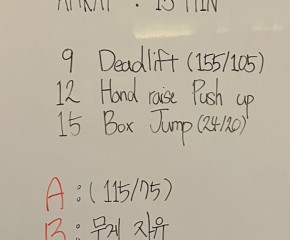 AMRAP : 15 MIN
9 Deadlift (155/105)
12 Hand raise Push up
15 Box Jump (24/20)
A : (115/75)
B : 무게 자유